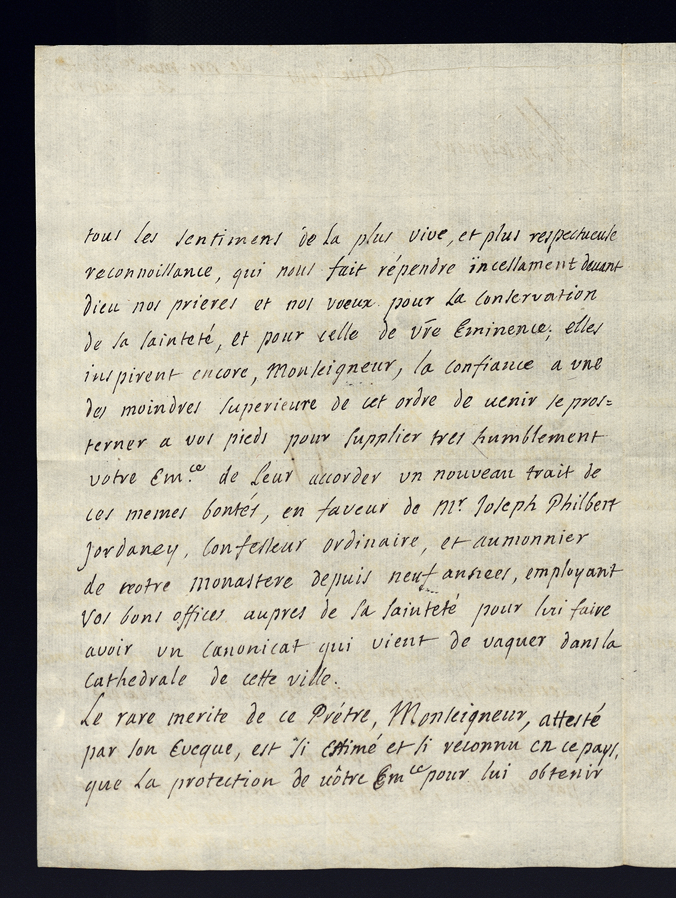 tous les sentimens de la plus vive, et plus respectueuse
reconnoissance, qui nous fait répendre incessament devant
Dieu nos prieres et nos voeux pour la conservation
de sa sainteté, et pour celle de vre Eminence; elles
inspirent encore, Monseigneur, la confiance a une
des moindres superieure de cet ordre de venir se pros=
terner a vos pieds pour supplier tres humblement
votre Em.ce de leur accorder un nouveau trait de
ces memes bontés, en faveur de Mr Joseph Philbert
Jordaney, Confesseur ordinaire, et aumonnier
de notre monastere depuis neuf annees, employant
vos bons offices aupres de sa sainteté pour lui faire
avoir un canonicat qui vient de vaquer dans la
cathedrale de cette ville.
Le rare merite de ce Prétre, Monseigneur, attesté
par son Eveque, est si estimé et si reconnu en ce pays,
que la protection de vôtre Em.ce pour lui obtenir